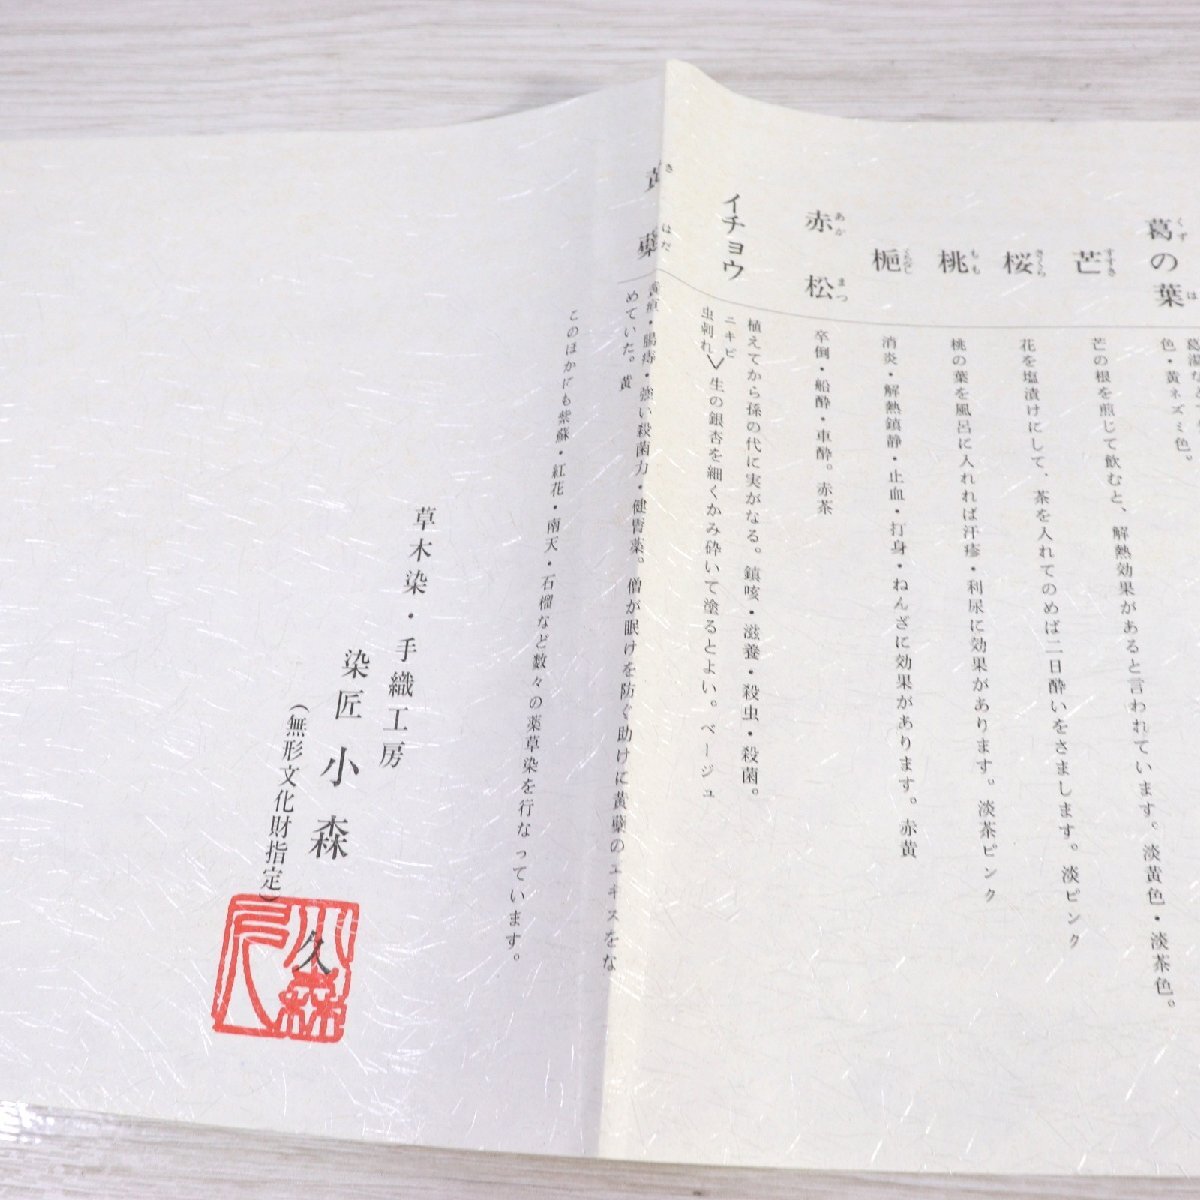 葛の葉
くず は
色・黄ネズミ色。
芒
すすき
芒の根を煎じて飲むと、解熱効果があると言われています。淡黄色・淡茶色。
桜
さくら
花を塩漬けにして、茶を入れてのめば二日酔いをさまします。淡ピンク
桃
もも
桃の葉を風呂に入れれば汗疹・利尿に効果があります。淡茶ピンク
梔
くちなし
消炎・解熱鎮静・止血・打身・ねんざに効果があります。赤黄
赤松
あか まつ
卒倒・船酔・車酔。赤茶
イチョウ
植えてから孫の代に実がなる。鎮咳・滋養・殺虫・殺菌。
ニキビ
虫刺れ
生の銀杏を細くかみ砕いて塗るとよい。ベージュ
黄蘗
き はだ
黄疸・腸痔・強い殺菌力・健胃薬。僧が眠けを防ぐ助けに黄蘗のエキスをな
めていた。黄
このほかにも紫蘇・紅花・南天・石榴など数々の薬草染を行なっています。
草木染・手織工房
染匠 小森 久
(無形文化財指定)
小森
久